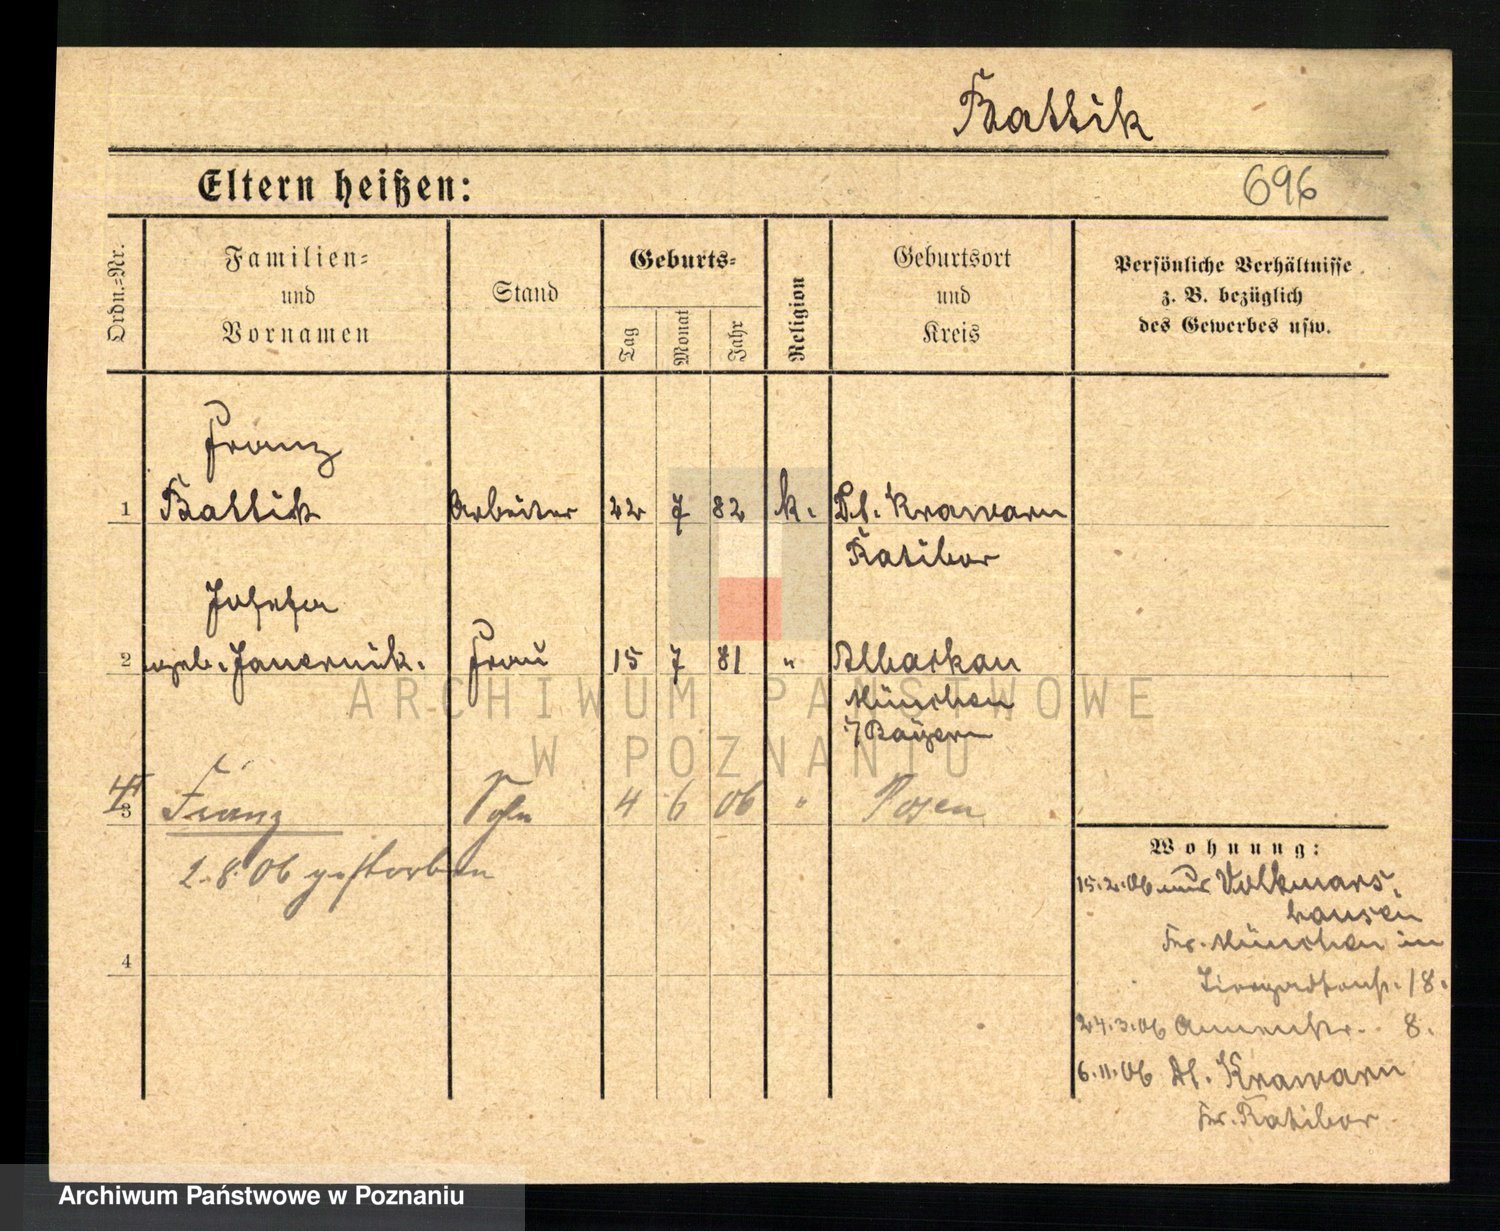 Battik
Eltern heißen:
696
Ordn.-Nr.
Familien-
und
Vornamen
Stand
Geburts-
Tag
Monat
Jahr
Religion
Geburtsort
und
Kreis
Persönliche Verhältnisse
z. B. bezüglich
des Gewerbes usw.
Franz
1 Battik Arbeiter 22 7 82 k. Dt. Krawarn
Ratibor
Josefa
2 geb. Frau 15 7 81 "
München
i/Bayern
3 Franz Sohn 4 6 06 " Posen
2.8.06 gestorben
4
Wohnung:
15.2.06 aus Volkmars-
hausen
Kr. München in
18.
24.3.06 Annenstr. 8.
6.11.06 Dt. Krawarn
Kr. Ratibor
ARCHIWUM PAŃSTWOWE
W POZNANIU
Archiwum Państwowe w Poznaniu